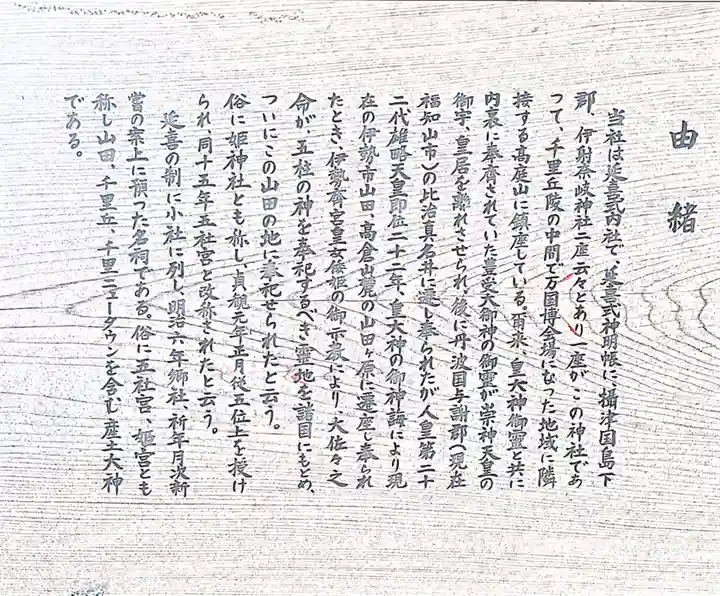 由緒
当社は延喜式内社で、延喜式神明帳に、攝津国島下
郡、伊射奈岐神社二座云々とあり一座がこの神社であ
って、千里丘陵の中間で万国博会場になった地域に隣
接する高庭山に鎮座している。爾来、皇大神御霊と共に
内裏に奉齋されていた豊受大御神の御霊が崇神天皇の
御宇、皇居を離れさせられ、後に丹波国与謝郡(現在
福知山市)の比治真名井に遷し奉られたが人皇第二十
二代雄略天皇即位二十二年、皇大神の御神誨により現
在の伊勢市山田、高倉山麓の山田ヶ原に遷座し奉られ
たとき、伊勢齊宮皇女倭姫の御示教により、大佐々之
命が、五柱の神を奉祀するべき靈地を、諸国にもとめ、
ついにこの山田の地に奉祀せられたと云う。
俗に姫神社とも称し、貞観元年正月従五位上を授け
られ、同十五年五社宮と改称されたと云う。
延喜の制に小社に列し、明治六年郷社、祈年月次新
嘗の案上に預った名祠である。俗に五社宮、姫宮とも
称し山田、千里丘、千里ニュータウンを含む産土大神
である。